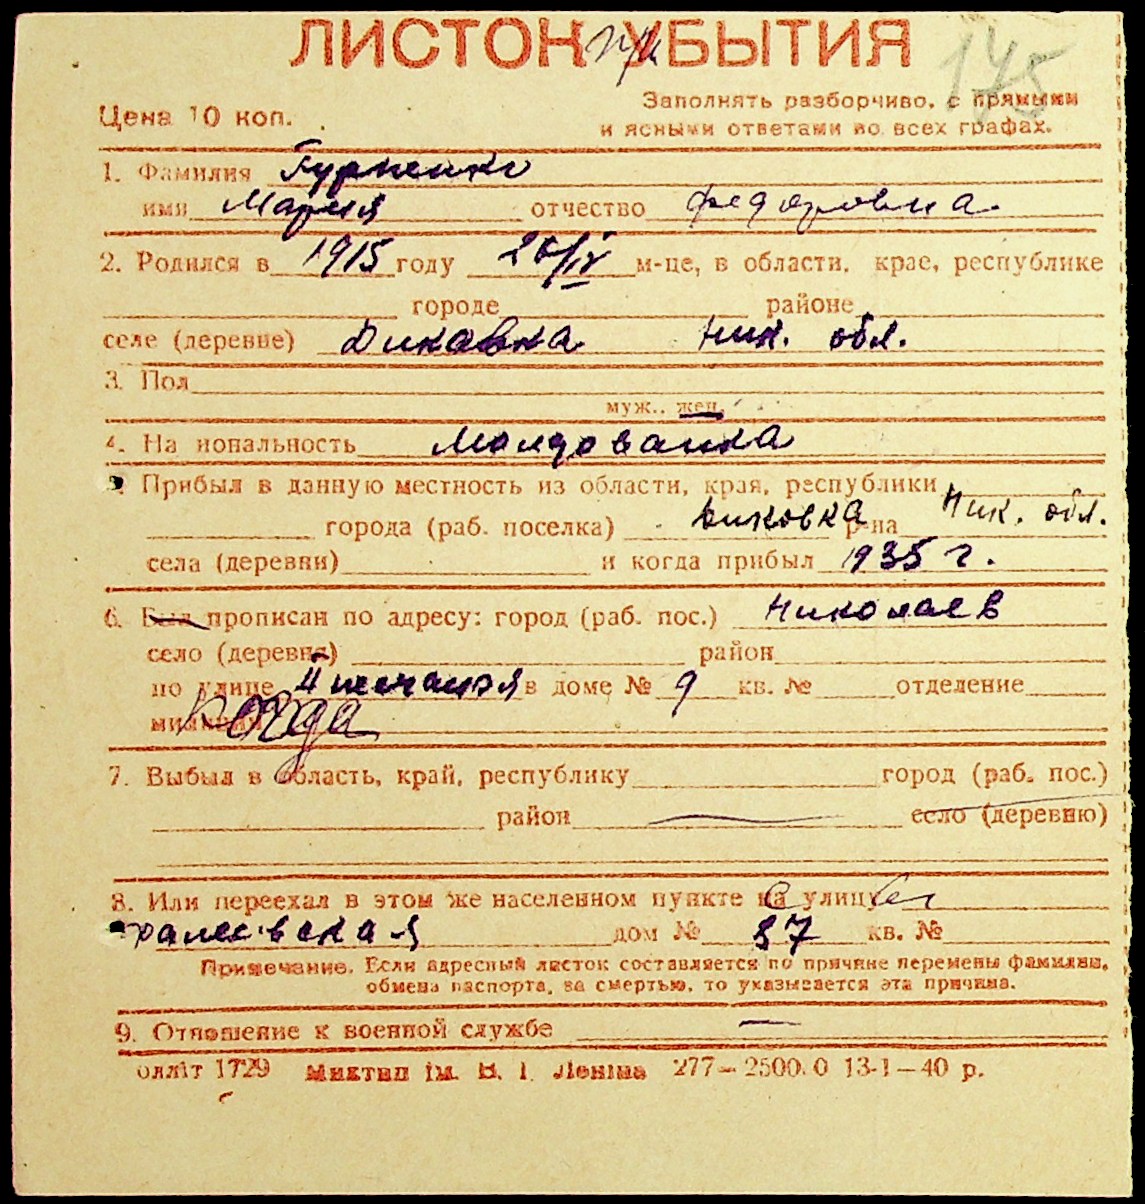 ЛИСТОК УБЫТИЯ
при
175
Заполнять разборчиво, с прямыми
Цена 10 коп.
и ясными ответами во всех графах.
1. Фамилия Гурненко
имя Мария отчество Федоровна
2. Родился в 1915 году 26/IV м-це, в области, крае, республике
городе районе
селе (деревне) Дикавка Ник. обл.
3. Пол
муж., жен.
4. На иональность Молдованка
5. Прибыл в данную местность из области, края, республики Ник. обл.
города (раб. поселка) Диковка р-на
села (деревни) и когда прибыл 1935 г.
6. Был прописан по адресу: город (раб. пос.) Николаев
село (деревня) район
по улице II песчаная в доме № 9 кв. № отделение
милиции
7. Выбыл в область, край, республику город (раб. пос.)
район село (деревню)
8. Или переехал в этом же населенном пункте на улицу
дом № 37 кв. №
Примечание. Если адресный листок составляется по причине перемены фамилии,
обмена паспорта, за смертью, то указывается эта причина.
9. Отношение к военной службе —
олліт 1729 Миктип ім. В. І. Леніна 277—2500.0 13-1—40 р.